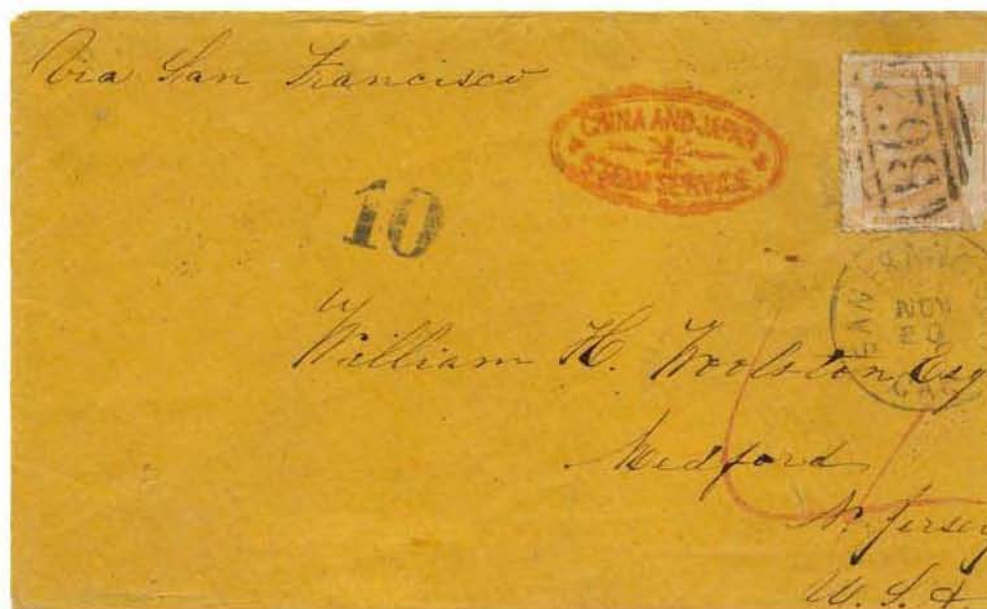 Via San Francisco
CHINA AND JAPAN
STEAM SERVICE
B62
10
EIGHT CENTS
SAN FRAN
NOV
20
CAL
William H. Woolston Esq
Medford
N. Jersey
U. S. A.